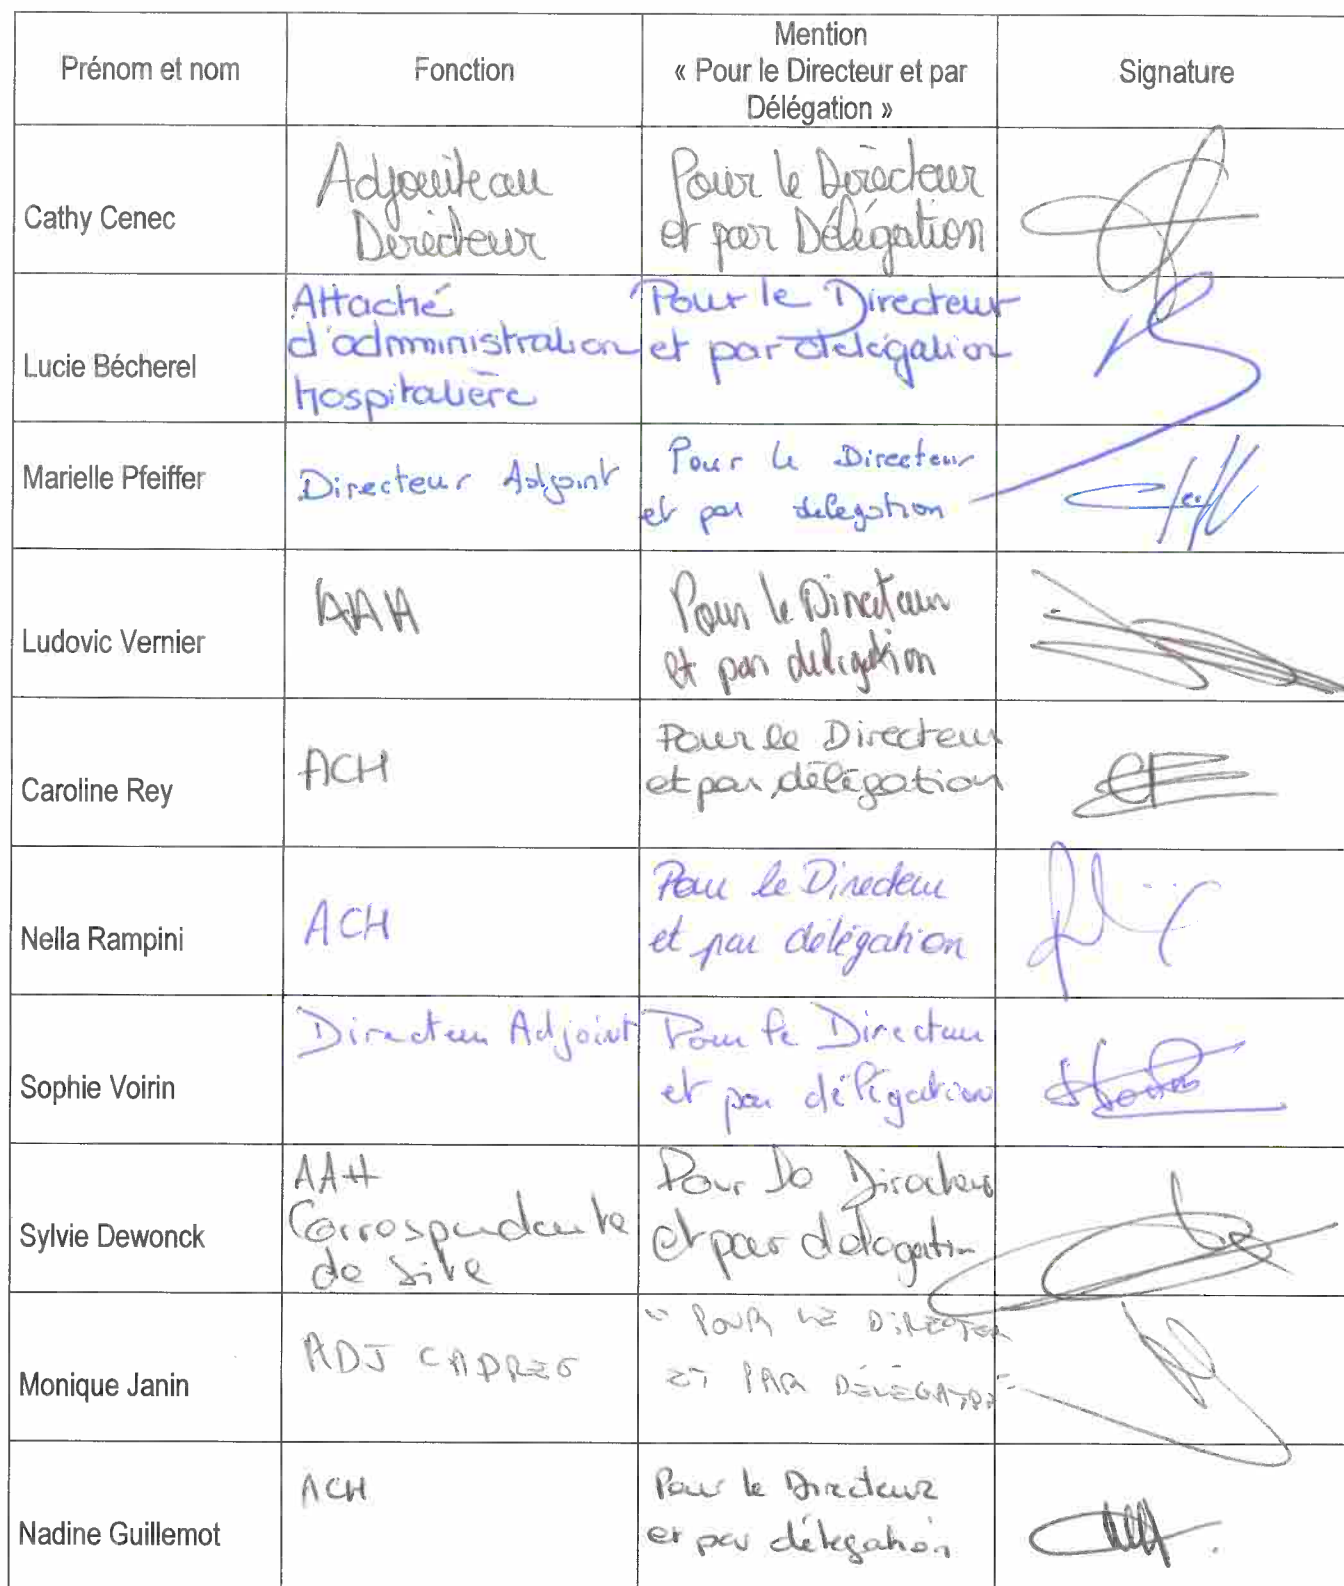 Prénom et nom
Fonction
Mention
« Pour le Directeur et par
Délégation »
Signature
Cathy Cenec
Adjointe au
Directeur
Pour le Directeur
et par Délégation
Lucie Bécherel
Attaché
d'administration
hospitalière
Pour le Directeur
et par délégation
Marielle Pfeiffer
Directeur Adjoint
Pour le Directeur
et par delegation
Ludovic Vernier
AAH
Pour le Directeur
et par délégation
Caroline Rey
ACH
Pour le Directeur
et par délégation
Nella Rampini
ACH
Pour le Directeur
et par délégation
Sophie Voirin
Directeur Adjoint
Pour le Directeur
et par délégation
Sylvie Dewonck
AAH
Correspondante
de site
Pour le Directeur
et par délégation
Monique Janin
ADJ CADRES
" POUR LE DIRECTER
ET PAR DÉLÉGATION
Nadine Guillemot
ACH
Pour le Directeur
et par délégation